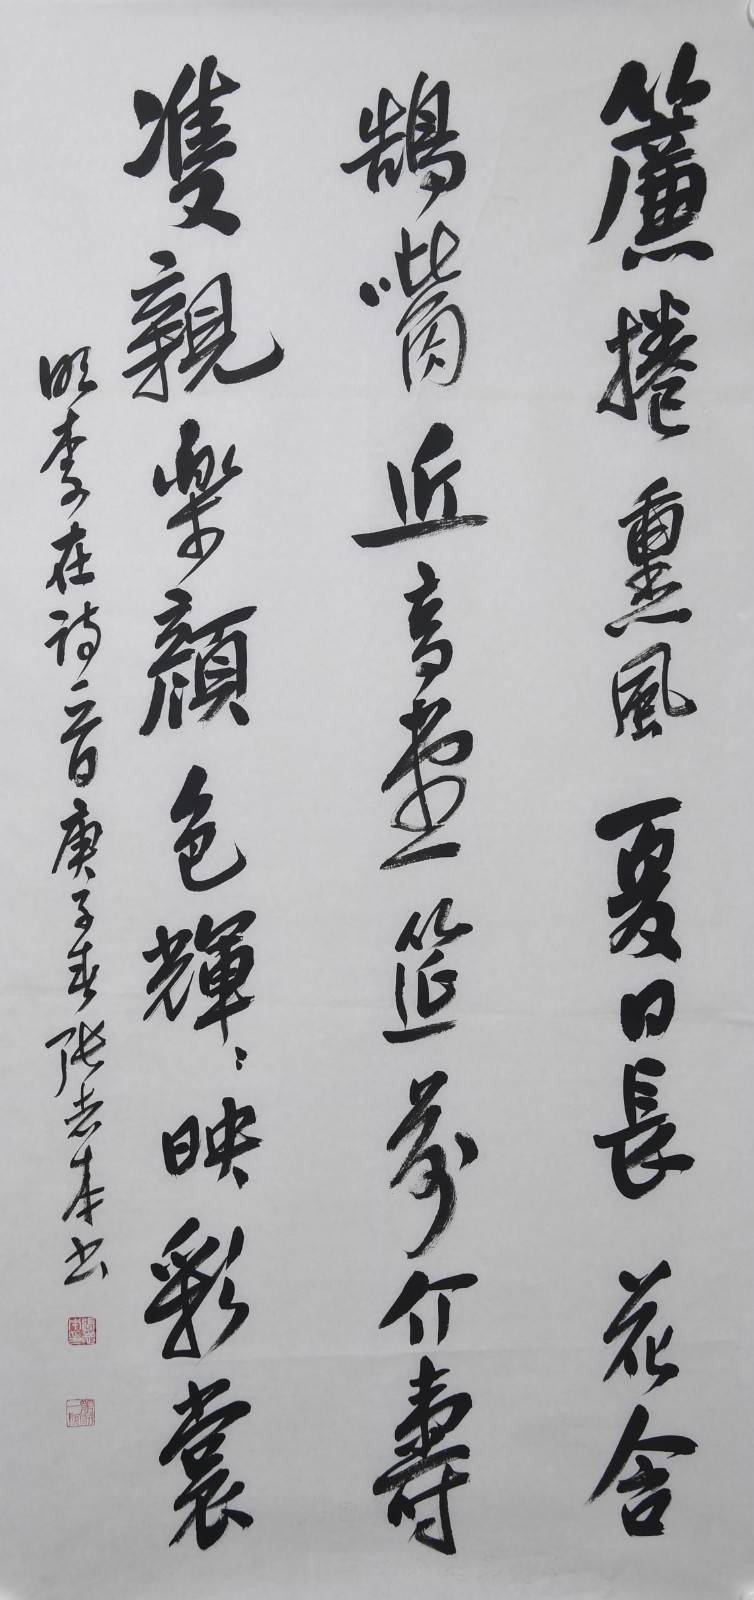 簾捲熏風夏日長花含
鵠嘴近高堂筵前介壽
雙親樂顏色輝〻映彩裳
明李在诗一首庚子春张志本书